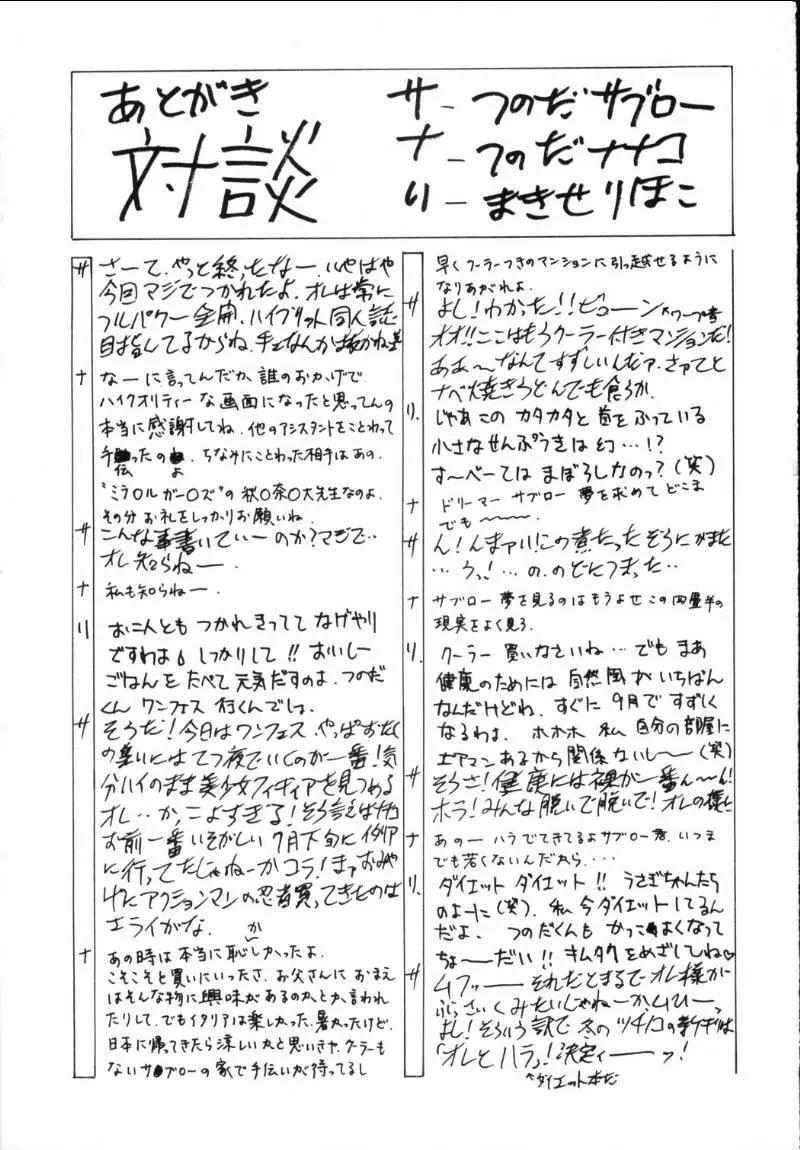 あとがき
対談
サ - つのだサブロー
ナ - つのだナナコ
り - まきせりほこ
サ さーて、やっと終ったなー、いやはや
今回マジでつかれたよ。オレは常に
フルパワー全開、ハイブリット同人誌
目指してるからね、手エなんかは抜かねえ
ナ なーに言ってんだか、誰のおかげで
ハイクオリティーな画面になったと思ってんの
本当に感謝してね。他のアシスタントをことわって
手伝ったのよ。ちなみにことわった相手はあの、
"ミラ○ルガー○ズ"の秋○奈○大先生なのよ。
その分お礼をしっかりお願いね。
サ こんな事書いていーのか?マジで…
オレ知らねー。
ナ 私も知らねー。
リ お二人ともつかれきっててなげやり
ですわよ。しっかりして!!おいしー
ごはんをたべて元気だすのよ。つのだ
くん ワンフェス行くんでしょ。
サ そうだ!今日はワンフェス、やっぱおたく
の集いにはてつ夜でいくのが一番!気
分ハイのまま美少女フィギュアを見つめる
オレ…かっこよすぎる!そう言えばナナコ
お前一番いそがしい7月下旬にイタリア
に行ってたじゃねーかコラ!まァおみや
げにアクションマンの忍者買ってきたのは
エライがな。
か
ナ あの時は本当に恥しかったよ。
こそこそと買いにいったさ。お父さんにおまえ
はそんな物に興味があるのかとか言われ
たりして。でもイタリアは楽しかった、暑かったけど。
日本に帰ってきたら涼しいかと思いきや、クーラーも
ないサブローの家で手伝いが待ってるし
早くクーラーつきのマンションに引っ越せるように
なりあがれよ。
サ よし!わかった!!ビューン*ワープ音
オオ!!ここはもうクーラー付きマンションだ!
ああ〜なんてすずしいんだァ、さァてと
ナベ焼きうどんでも食うか。
リ、 じゃあこのカタカタと首をふっている
小さなせんぷうきは幻…!?
す〜べーてはまぼろしなのっ?(笑)
ナ ドリーマーサブロー夢を求めてどこま
でも〜〜〜。
サ ん!んまァい!この煮たったぞうにがまた
…うっ!…の、のどにつまった…
ナ サブロー夢を見るのはもうよせ この四畳半の
現実をよく見ろ。
リ、 クーラー買いなさいね…でもまあ
健康のためには自然風がいちばん
なんだけどね。すぐに9月ですずしく
なるわよ。ホホホ 私、自分の部屋に
エアマンあるから関係ないし〜(笑)
サ そうさ!健康には裸が一番ん〜ん!
ホラ!みんな脱いで脱いで!オレの様に
ナ あのーハラでてきてるよサブロー君、いつま
でも若くないんだから....
リ、 ダイエットダイエット!!うさぎちゃんたち
のよーに(笑)。私今ダイエットしてるん
だよ。つのだくんもかっこよくなって
ちょーだい!!キムタクをめざしてね♡
サ ムフッーーそれだとまるでオレ様が
ぶさいくみたいじゃねーか、ムひーっ
よし!そういう訳で冬のツチノコの新刊は
「オレとハラ」!決定ィーーッ!
^ダイエット本だ